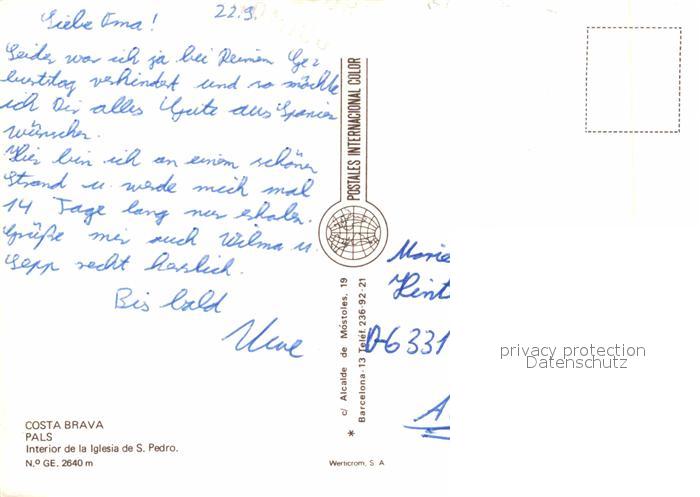 22.9.
Liebe Oma!
Leider war ich ja bei Deinem Ge=
burtstag verhindert und so möchte
ich Dir alles Gute aus Spanien
wünschen.
Hier bin ich an einem schönen
Strand u. werde mich mal
14 Tage lang nur erholen.
Grüße mir auch Wilma u.
Sepp recht herzlich.
Bis bald
Uwe
POSTALES INTERNACIONAL COLOR
c/ Alcalde de Móstoles, 19
Barcelona-13 Teléf. 236-92-21
*
Marie
Hint
D-6331
privacy protection
Datenschutz
COSTA BRAVA
PALS
Interior de la Iglesia de S. Pedro.
N.º GE. 2640 m
Werticrom, S. A.